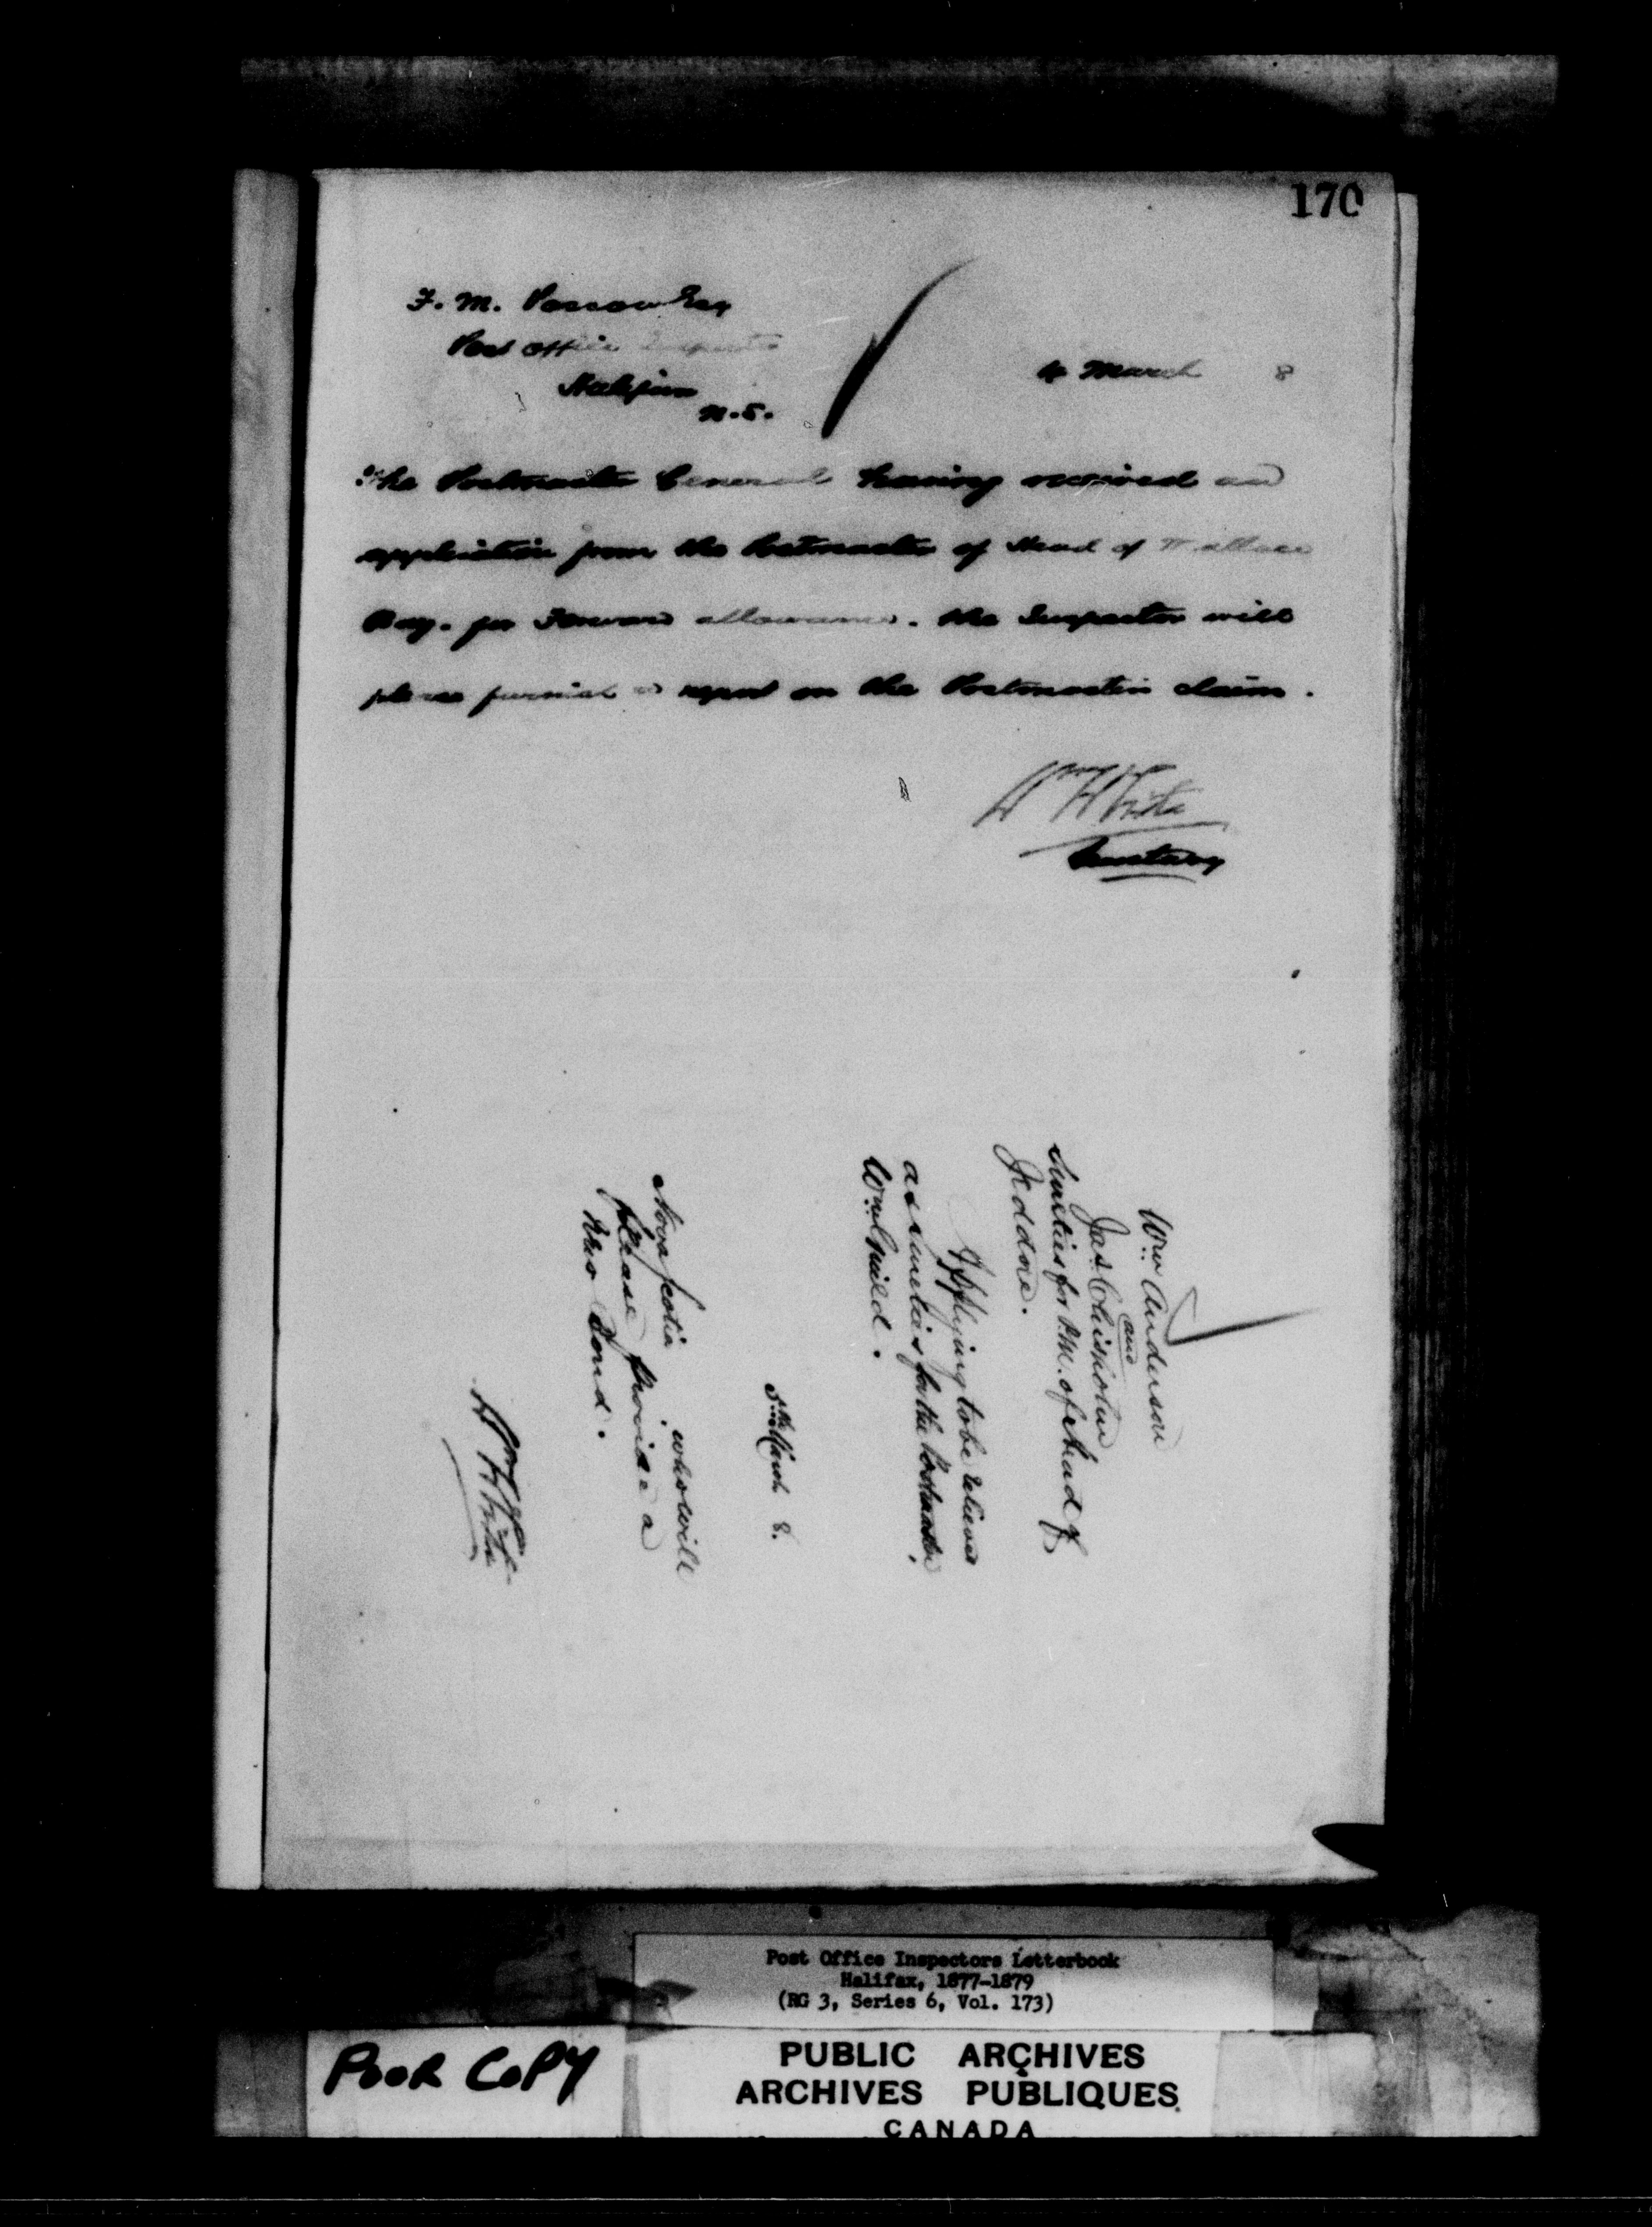 170
F. M. Passow Esq
Post Office Inspector
Halifax
N.S.
4 March 8
The Postmaster General having received an
application from the Postmaster of Head of Wallace
Bay. for Forward allowance. the Inspector will
please furnish a report on the Postmaster's claim.
Wm H White
Secretary
Wm Anderson
and
Jas Chisholm
Sureties for P.M. of Head of
Jeddore.
Applying to be relieved
as sureties for the Postmaster,
Wm Guild.
5th March 8.
Nova Scotia who will
please provide a
new Bond.
Wm H White
Post Office Inspectors Letterbook
Halifax, 1877-1879
(RG 3, Series 6, Vol. 173)
POOR COPY
PUBLIC ARCHIVES
ARCHIVES PUBLIQUES
CANADA